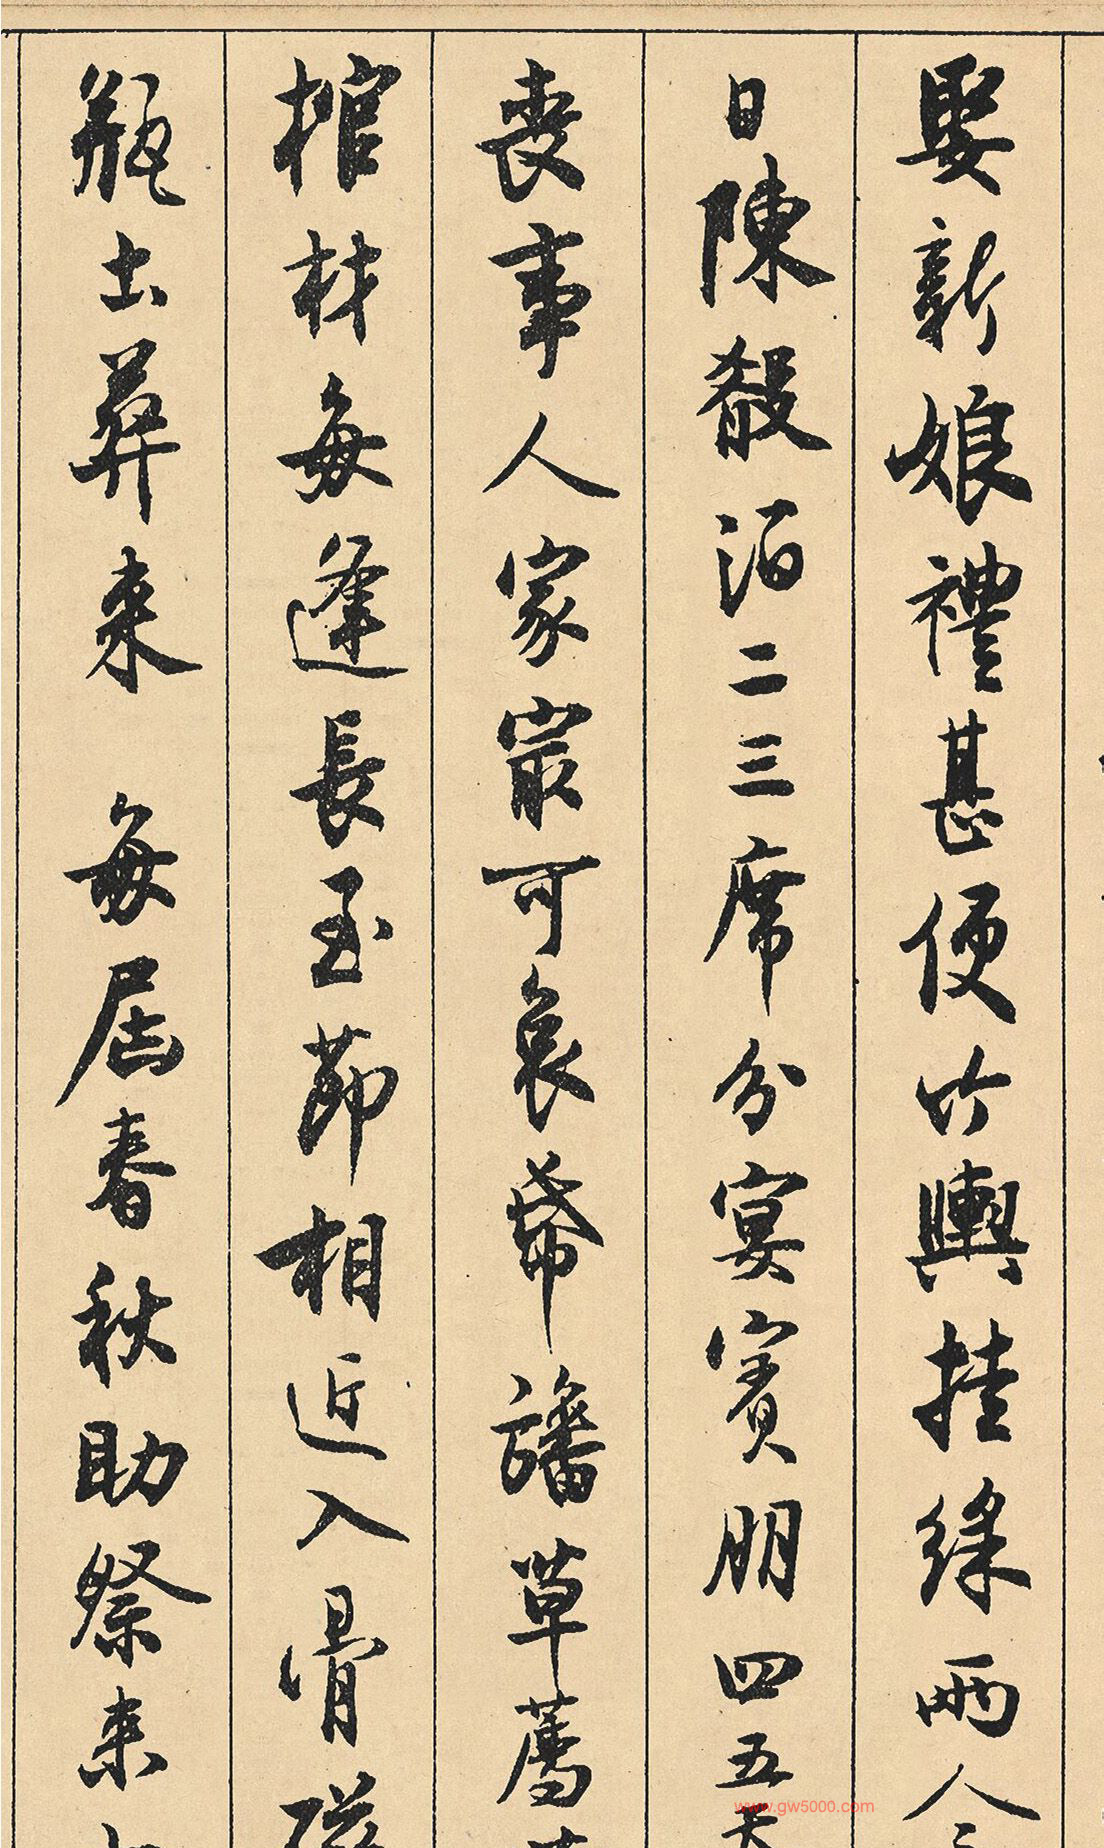 娶新娘禮甚便竹輿挂綵兩人
日陳殽酒二三席分宴賓朋四五天
喪事人家最可哀幣旛草薦
棺材每逢長至節相近入骨磁
瓶土葬來 每屆春秋助祭來
www.gw5000.com